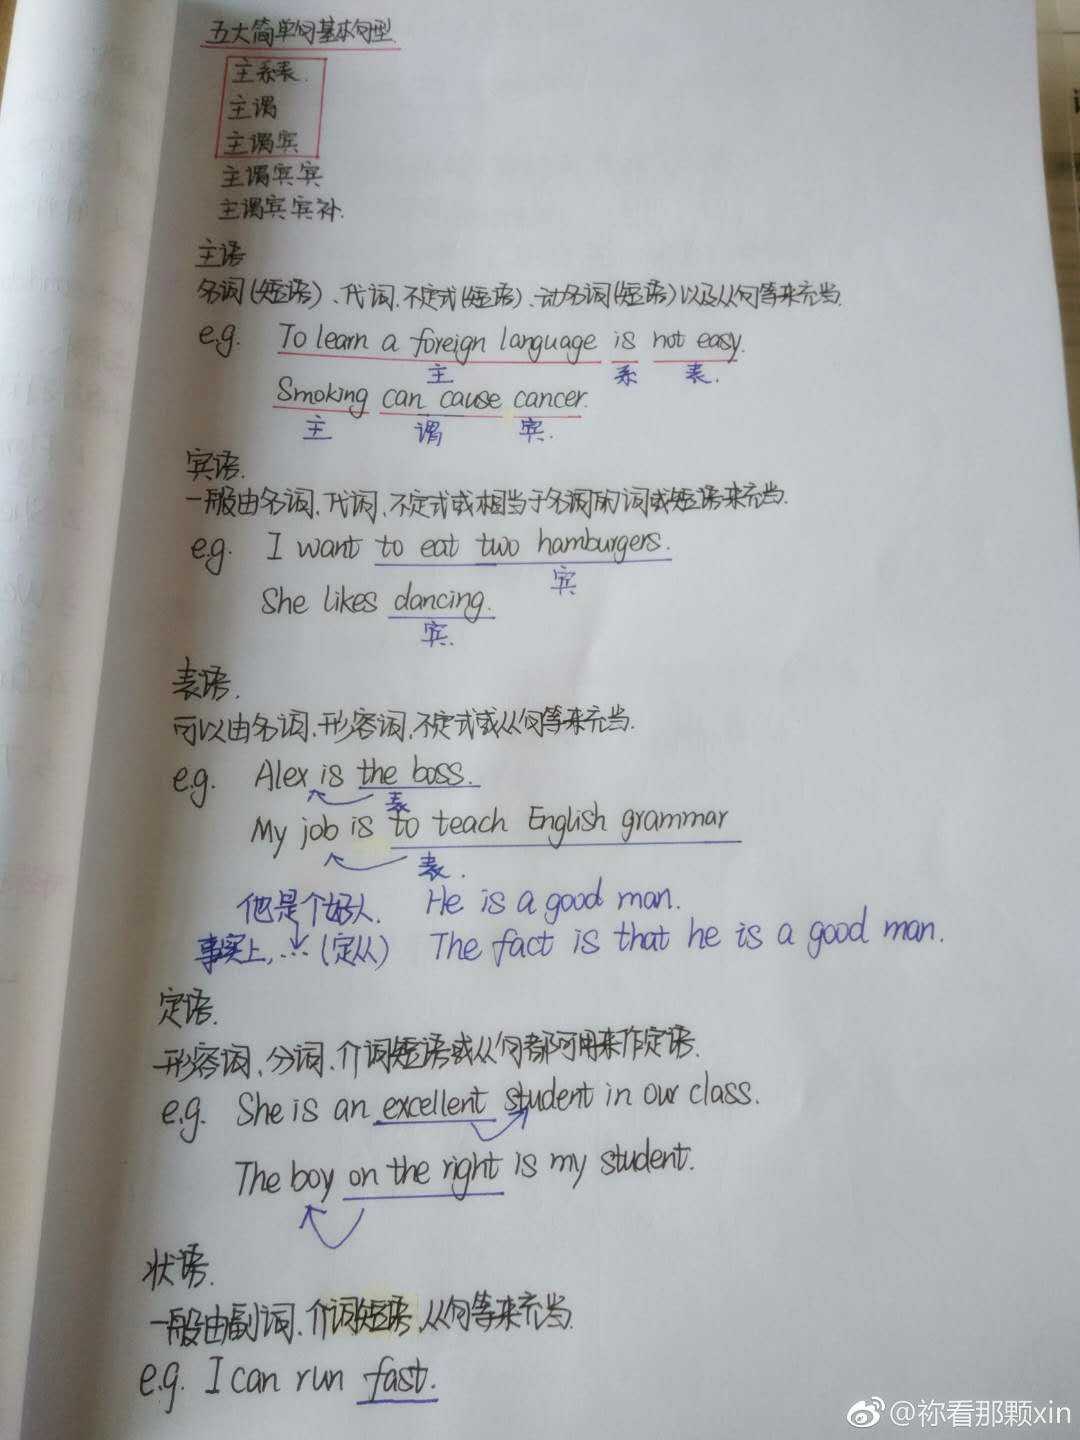 五大简单句基本句型
主系表.
主谓
主谓宾
主谓宾宾
主谓宾宾补.
主语
名词(短语)、代词、不定式(短语)、动名词(短语)以及从句等来充当.
e.g. To learn a foreign language is not easy.
主 系 表.
Smoking can cause cancer.
主 谓 宾.
宾语.
一般由名词、代词、不定式或相当于名词的词或短语来充当.
e.g. I want to eat two hamburgers.
宾
She likes dancing.
宾.
表语.
可以由名词、形容词、不定式或从句等来充当.
e.g. Alex is the boss.
表
My job is to teach English grammar
表.
他是个好人. He is a good man.
事实上,... (定从) The fact is that he is a good man.
定语.
形容词、分词、介词短语或从句都可用来作定语.
e.g. She is an excellent student in our class.
The boy on the right is my student.
状语.
一般由副词、介词短语、从句等来充当.
e.g. I can run fast.
@祢看那颗xin